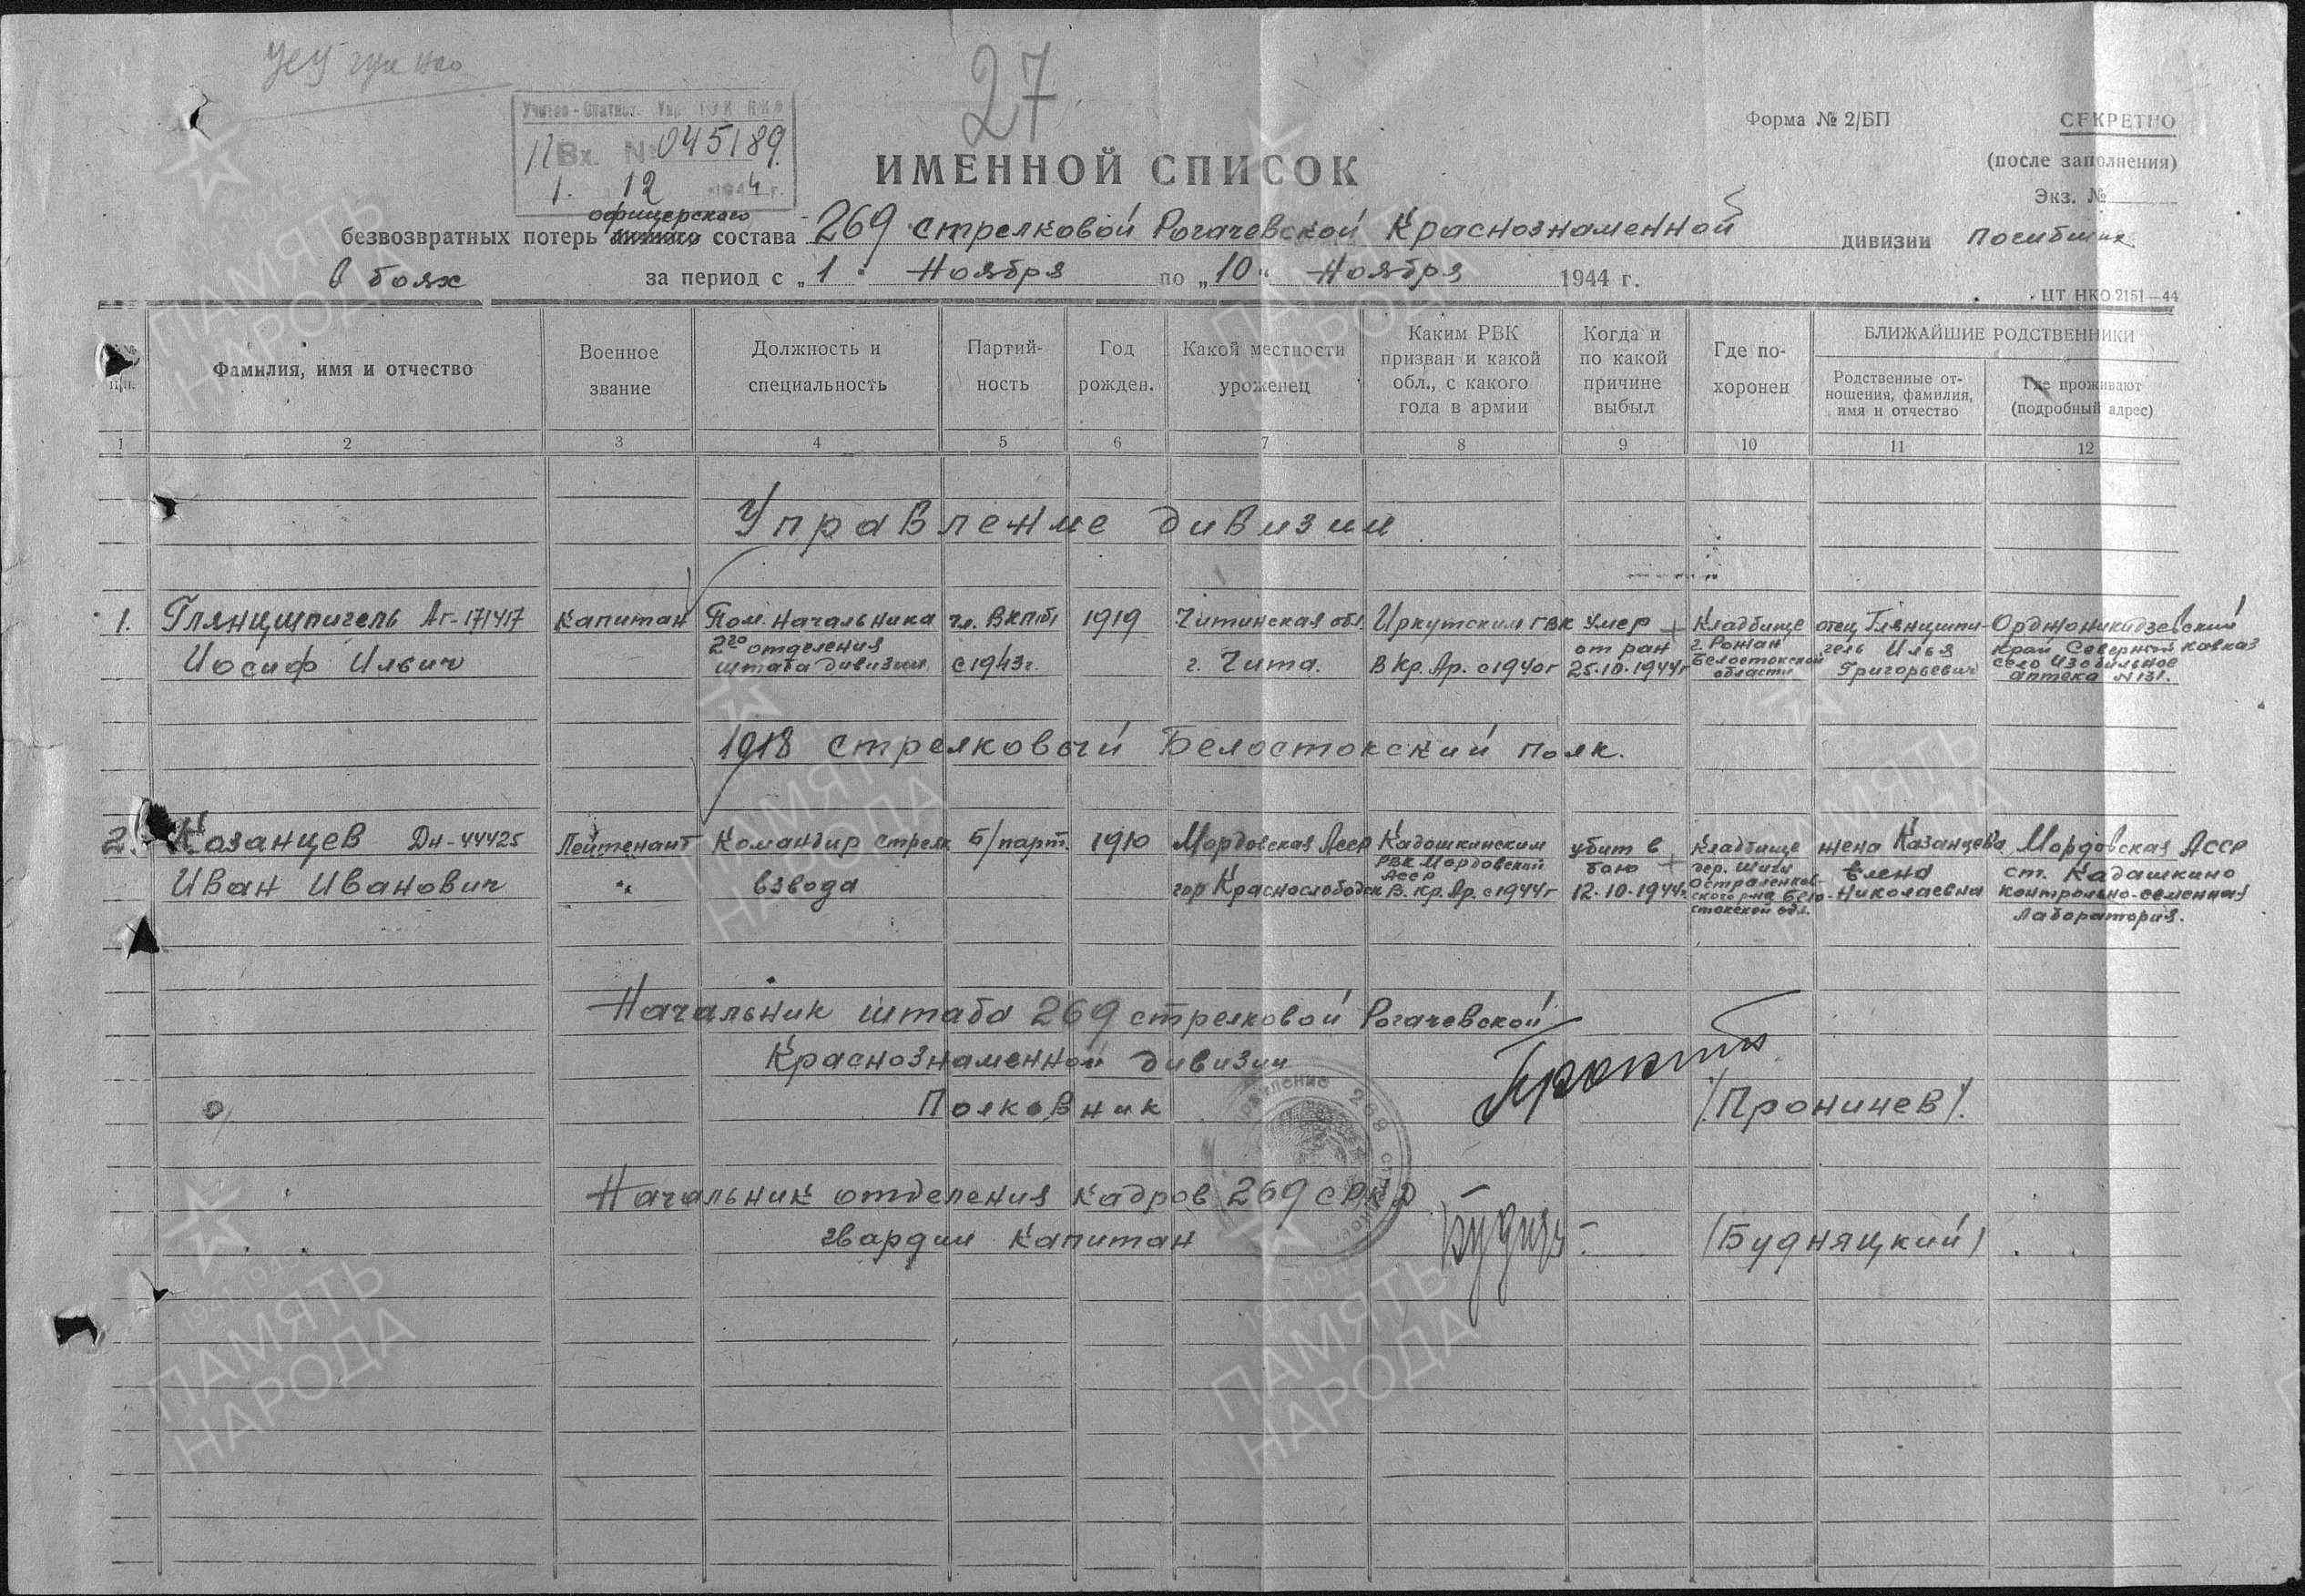 27
Учетно-Статист. Упр.
Вх. № 045189
1. 12 1944 г.
Форма № 2/БП
СЕКРЕТНО
(после заполнения)
Экз. №
ИМЕННОЙ СПИСОК
офицерского
безвозвратных потерь личного состава 269 стрелковой Рогачевской Краснознаменной дивизии погибших
в боях за период с „1" Ноября по „10" Ноября 1944 г.
ЦТ НКО 2151—44
п.п.
Фамилия, имя и отчество
Военное звание
Должность и специальность
Партий-ность
Год рожден.
Какой местности уроженец
Каким РВК призван и какой обл., с какого года в армии
Когда и по какой причине выбыл
Где по-хоронен
БЛИЖАЙШИЕ РОДСТВЕННИКИ
Родственные от-ношения, фамилия, имя и отчество
Где проживают (подробный адрес)
1 2 3 4 5 6 7 8 9 10 11 12
Управление дивизии
1. Глянцшпигель Аг-171417 Капитан Пом. Начальника чл. ВКП(б) 1919 Читинская обл. Иркутским ГВК Умер Кладбище отец Глянцшпи- Орджоникидзевский
2го отделения от ран г. Рожан гель Илья край Северный Кавказ
Иосиф Ильич штаба дивизии с 1943г. г. Чита. В Кр. Ар. с 1940г 25.10.1944г Белостокской области Григорьевич село Изобильное
аптека N 131.
1918 стрелковый Белостокский полк.
2. Козанцев Дн-44425 Лейтенант Командир стрелк б/парт. 1910 Мордовская Асср Кадошкинским убит в Кладбище жена Казанцева Мордовская Асср
РВК Мордовской Асср бою дер. Елена ст. Кадашкино
Иван Иванович " взвода гор Краснослободск В. Кр. Ар. с 1944г 12.10.1944г. Николаевна контрольно-семенная
стокской обл. лаборатория.
Начальник штаба 269 стрелковой Рогачевской
Краснознаменной дивизии
Полковник /Проничев/.
Начальник отделения кадров 269 СРКД
гвардии капитан (Будняцкий)
ПАМЯТЬ НАРОДА
1941-1945